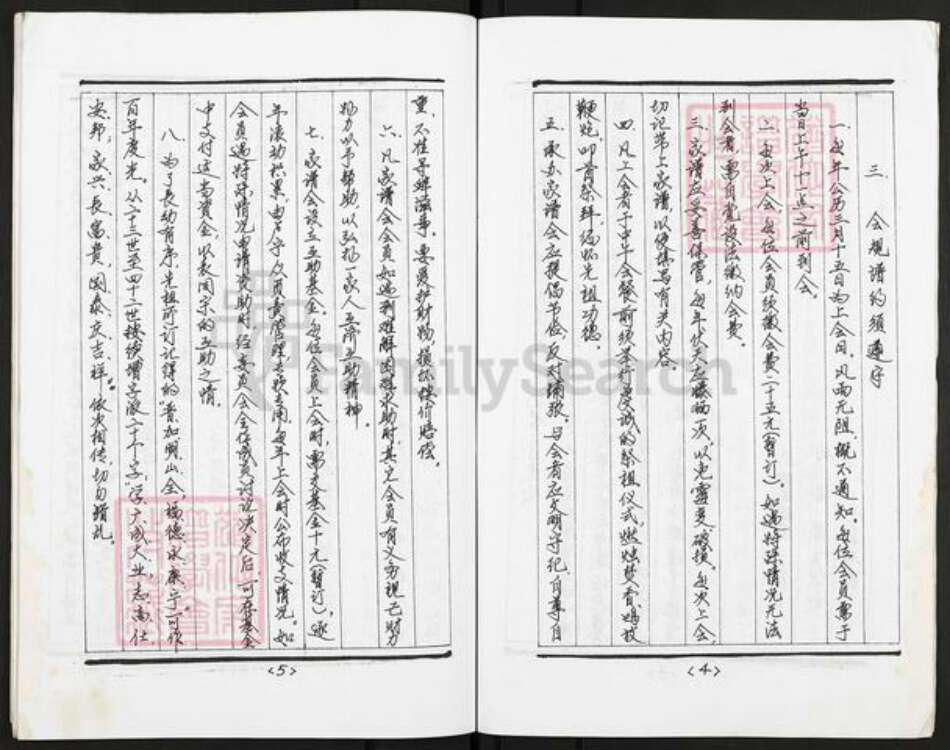 三. 会规谱约须遵守
一. 每年公历三月十五日为上会日, 风雨无阻, 概不通知。每位会员需于
当日上午十一点之前到会。
二. 每次上会, 每位会员须缴会费二十五元(暂订)。如遇特殊情况无法
到会者, 需自觉设法缴纳会费。
三. 家谱应妥善保管, 每年伏天应曝晒一次, 以免霉变、破损。每次上会,
切记带上家谱, 以便填写有关内容。
四. 凡上会者于中午会餐前须举行虔诚的祭祖仪式, 燃烛焚香, 鸣放
鞭炮, 叩首祭拜, 缅怀先祖功德。
五. 承办家谱会应提倡节俭, 反对铺张。与会者应文明守纪, 自尊自
<4>
重, 不准寻衅滋事。要爱护财物, 损坏按价赔偿。
六. 凡家谱会会员如遇到难解困难求助时, 其它会员有义务视己财力
物力以予帮助, 以弘扬一家人互济互助精神。
七. 家谱会设立互助基金。每位会员上会时, 需交基金十元(暂订), 逐
年滚动积累, 由专人负责管理, 专款专用, 每年上会时公布收支情况。如
会员遇特殊情况申请资助时, 经委员会全体成员讨论决定后, 可在基金
中支付适当资金, 以表同宗的互助之情。
八. 为了长幼有序, 先祖所订记绎的“普加明山全, 福德永康宁”可作
百年度光。从二十三世至四十二世接续增字派二十个字:“学广成大业, 志高仕
安邦, 家兴长富贵, 国泰庆吉祥”。依次相传, 切勿错乱。
<5>
FamilySearch